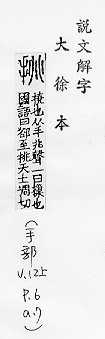 說文解字
大徐本
撓也从手兆聲一曰摷也
國語曰郤至挑天土凋切
(手部
V.12上
P.6
a.7)